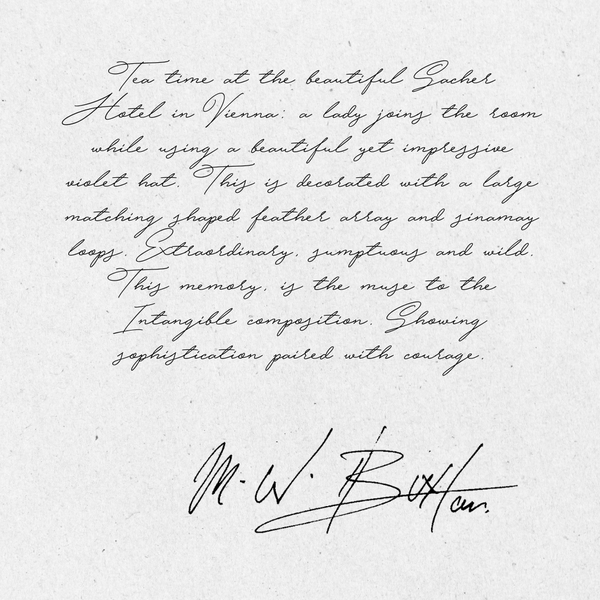 Tea time at the beautiful Sacher
Hotel in Vienna: a lady joins the room
while using a beautiful yet impressive
violet hat. This is decorated with a large
matching shaped feather array and sinamay
loops. Extraordinary, sumptuous and wild.
This memory, is the muse to the
Intangible composition. Showing
sophistication paired with courage.
M. W. Buxton.